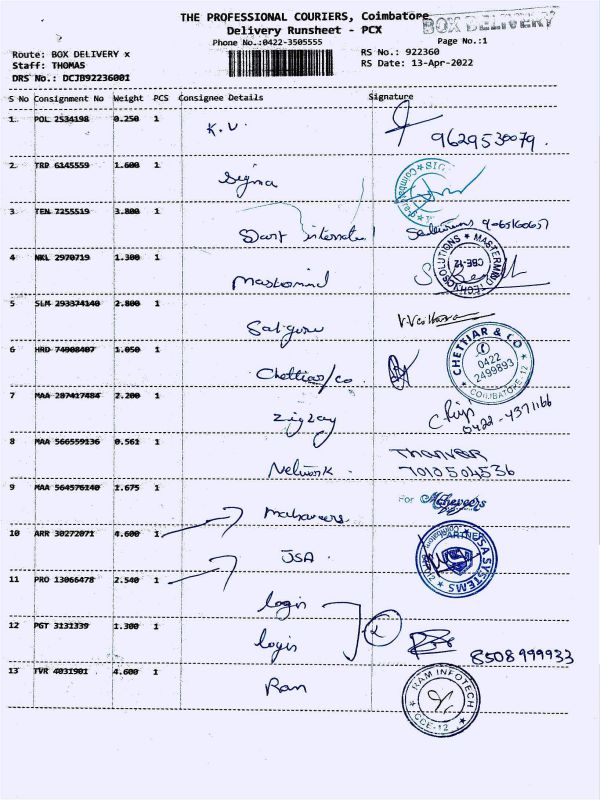 THE PROFESSIONAL COURIERS, Coimbatore
BOX DELIVERY
Delivery Runsheet - PCX
Phone No.:0422-3505555
Page No.:1
Route: BOX DELIVERY x
RS No.: 922360
Staff: THOMAS
RS Date: 13-Apr-2022
DRS No.: DCJB92236001
S No Consignment No Weight PCS Consignee Details Signature
1. POL 2534198 0.250 1
K.V.
9629530079.
2 TRP 6145559 1.600 1
Sigma
SIG
Coimbatore
3 TEN 7255519 3.800 1
Dart
4 NKL 2970719 1.300 1
Mastermind
MASTERMIND TECHNOSOLUTIONS
CBE-12
5 SLM 293374140 2.800 1
Satguru
6 HRD 74908407 1.050 1
Chettiar/co.
CHETTIAR & CO
0422
2499893
COIMBATORE-12
7 MAA 287417484 2.200 1
Zigzay
0422-4371166
8 MAA 566559136 0.561 1
Network.
7010504536
9 MAA 564576140 1.675 1
Mahaveers
For Mahaveers
10 ARR 30272071 4.600 1
JSA.
JSA SYSTEMS
11 PRO 13066478 2.540 1
login
12 PGT 3131339 1.300 1
login
8508999933
13 TVR 4031901 4.600 1
Ram
RAM INFOTECH
CCE-12